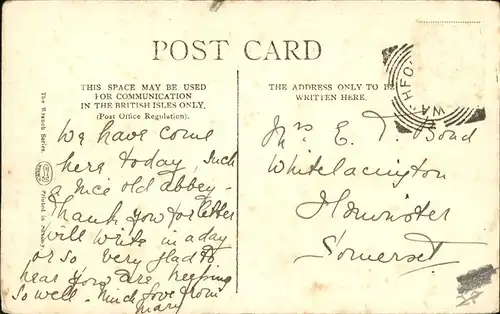 POST CARD
THIS SPACE MAY BE USED
FOR COMMUNICATION
IN THE BRITISH ISLES ONLY.
(Post Office Regulation).
We have come
here today, Such
a nice old abbey -
Thank you for letter
will write in a day
or so very glad to
hear you are keeping
so well - Much love from
Mary
THE ADDRESS ONLY TO BE
WRITTEN HERE.
Mrs E. T. Bond
Whitelackington
Ilminster
Somerset
The Wrench Series.
Printed in